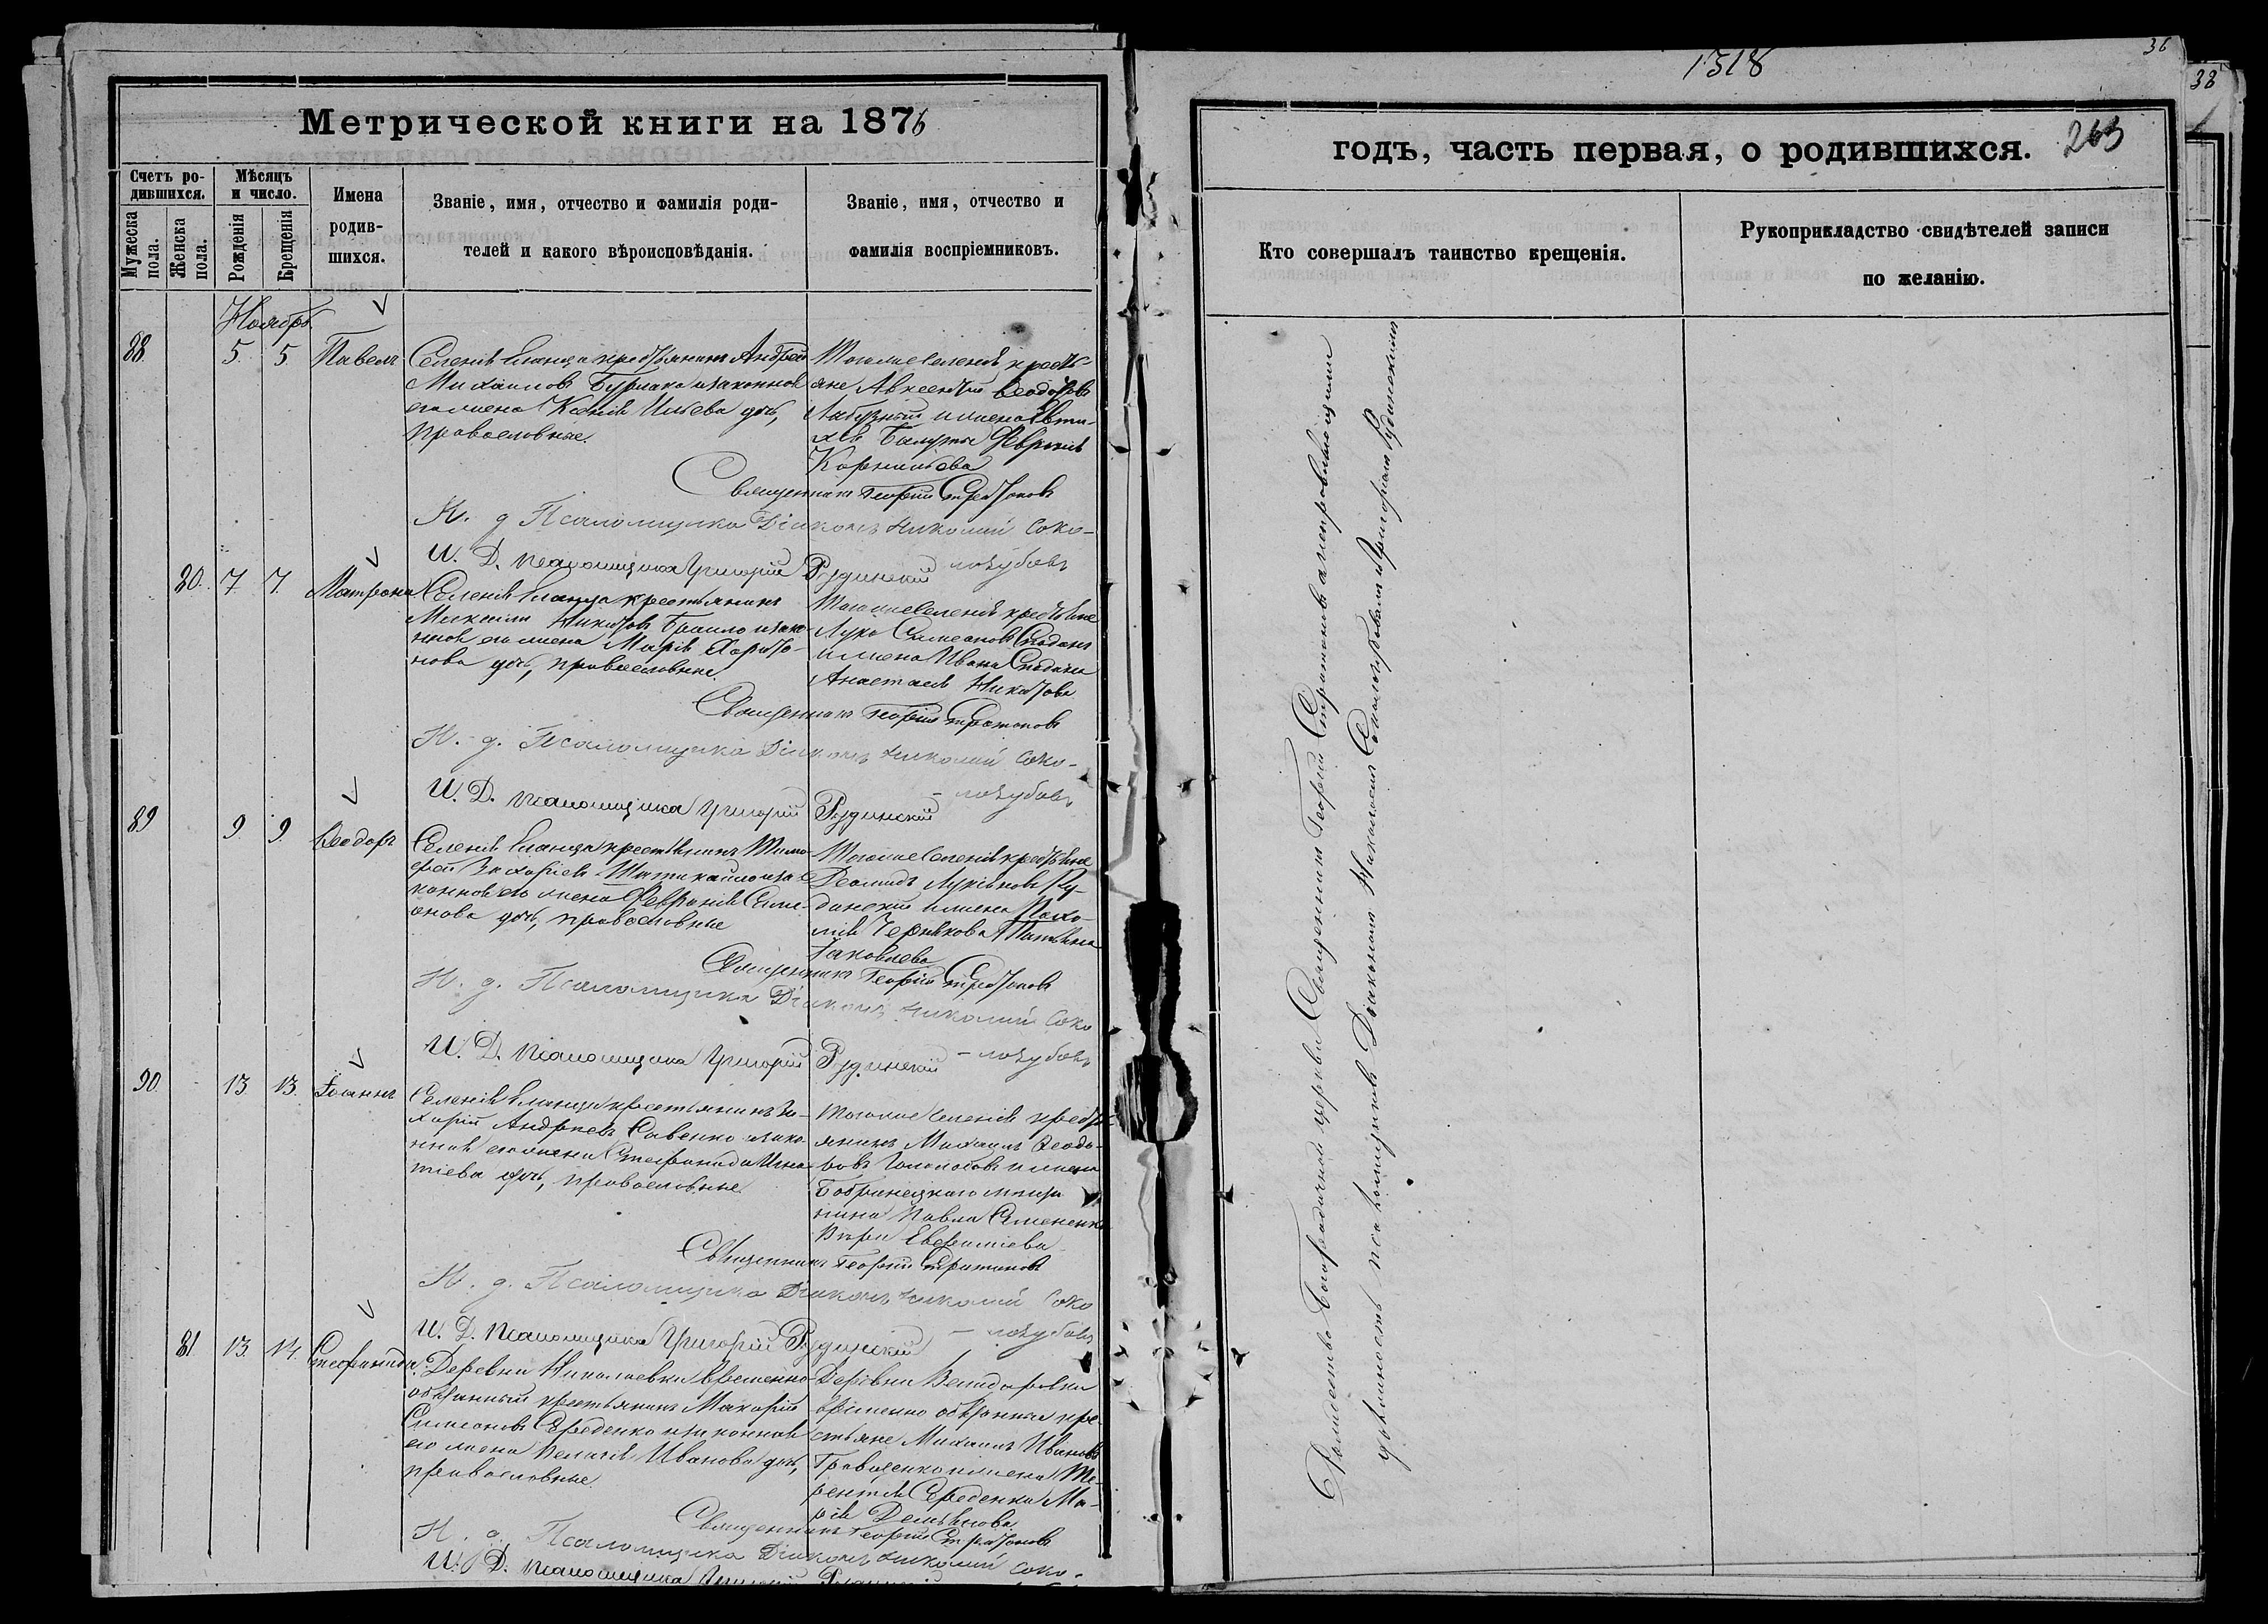 Метрической книги на 1876
Счетъ ро-
дившихся.
Мѣсяцъ
и число.
Мужеска
пола.
Женска
пола.
Рожденія
Крещенія
Имена
родив-
шихся.
Званіе, имя, отчество и фамилія роди-
телей и какого вѣроисповѣданія.
Званіе, имя, отчество и
фамилія воспріемниковъ.
Ноябрь
88 5 5 Павелъ
Селенія Еланца крестьянинъ Андрей
Михаиловъ Бурлака и законная
его жена Ксенія Ильева дчь,
православные.
Тогоже Селенія кресть-
яне Авксентій Ѳеодоровъ
и жена Евти-
хія Феѵронія
Корнильева
Священникъ Георгій Стратоновъ
И. д. Псаломщика Діаконъ Николай Соко-
лозубовъ
И. Д. псаломщика Григорій Рудинскій
80. 7 7. Матрона
Селенія Еланца крестьянинъ
Никитовъ Браило и зако-
нная его жена Марія Харито-
нова дчь, православные.
Тогоже Селенія крестьяне
Лука Симеоновъ Сподонъ
и жена Ивана
Анастасія Никитова
Священникъ Георгій Стратоновъ
И. д. Псаломщика Діаконъ Николай Соко-
лозубовъ
И. Д. псаломщика Григорій Рудинскій
89 9 9. Ѳеодоръ
Селенія Еланца крестьянинъ Тимо-
фей Захаріевъ и за-
конная его жена Февронія Симе-
онова дчь, православные
Тогоже Селенія крестьяне
Ру-
динскій и жена Пахо-
мія Чернякова Татьяна
Іаковлева
Священникъ Георгій Стратоновъ
И. д. Псаломщика Діаконъ Николай Соко
лозубовъ
И. Д. псаломщика Григорій Рудинскій
90. 13 13. Іоаннъ
Селенія Еланца крестьянинъ За-
харій Андреевъ Савенко и зако-
нная его жена Стефанида Игна-
тіева дчь, православные.
Тогоже Селенія кресть-
янинъ Михаилъ Ѳеодо-
ровъ и жена
Бобринецкаго мѣща
нина Павла Симененко
Вѣра
Священникъ Георгій Стратоновъ
И. д. Псаломщика Діаконъ Николай Соко
лозубовъ
И. Д. псаломщика Григорій Рудинскій
81 13. 14. Стефанида
Деревни Николаевки временно-
обязанный крестьянинъ Макарій
Симеоновъ Середенко и законная
его жена Пелагія Иванова дчь,
православные.
Деревни
временно обязанные кре-
стьяне Михаилъ Ивановъ
и жена Те-
рентія Середенка Ма-
рія Демьянова.
Священникъ Георгій Стратоновъ
И. д. Псаломщика Діаконъ Николай Соко-
И. Д. псаломщика Григорій Рудинскій
1318
36
38
263
годъ, часть первая, о родившихся.
Кто совершалъ таинство крещенія.
Рукоприкладство свидѣтелей записи
по желанію.
Рождество Богородичной церкви Священникъ Георгій Стратоновъ съ исправляющими
должность псаломщиковъ Діакономъ Николаемъ Соколозубовымъ и Григоріемъ Рудинскимъ